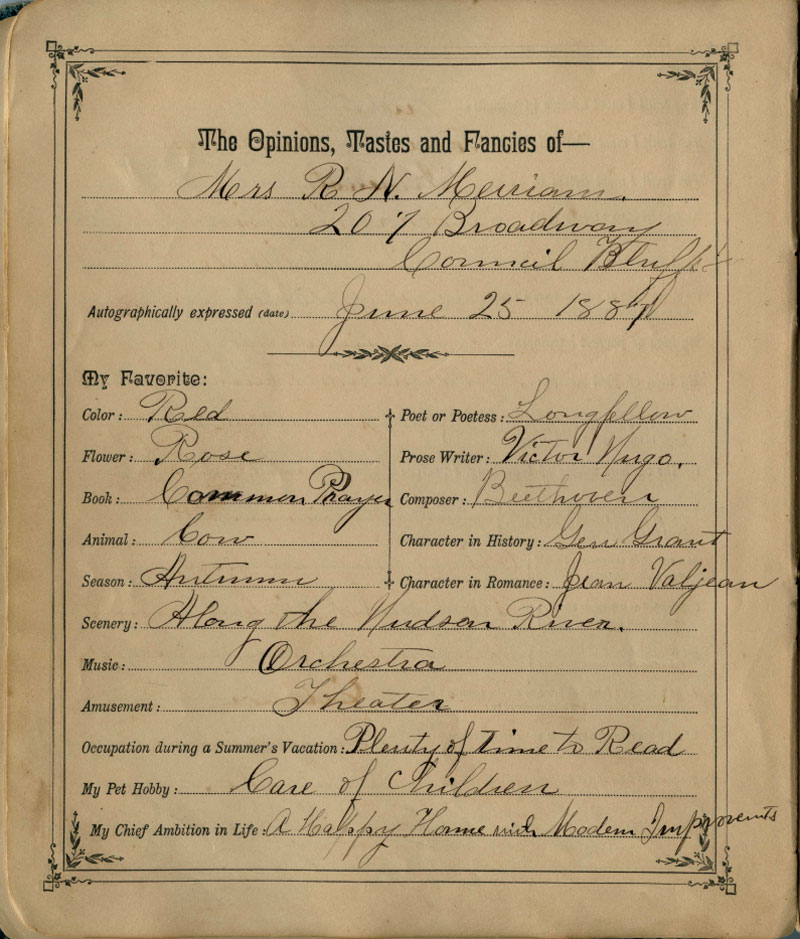 The Opinions, Tastes and Fancies of—
Mrs R. N. Merriam.
207 Broadway
Council Bluffs
Autographically expressed (date) June 25 1887
My Favorite:
Color: Red
Flower: Rose
Book: Common Prayer
Animal: Cow
Season: Autumn
Poet or Poetess: Longfellow
Prose Writer: Victor Hugo.
Composer: Beethoven
Character in History: Gen Grant
Character in Romance: Jean Valjean
Scenery: Along the Hudson River.
Music: Orchestra
Amusement: Theater
Occupation during a Summer's Vacation: Plenty of time to Read
My Pet Hobby: Care of Children
My Chief Ambition in Life: A Happy Home with Modern Improvents